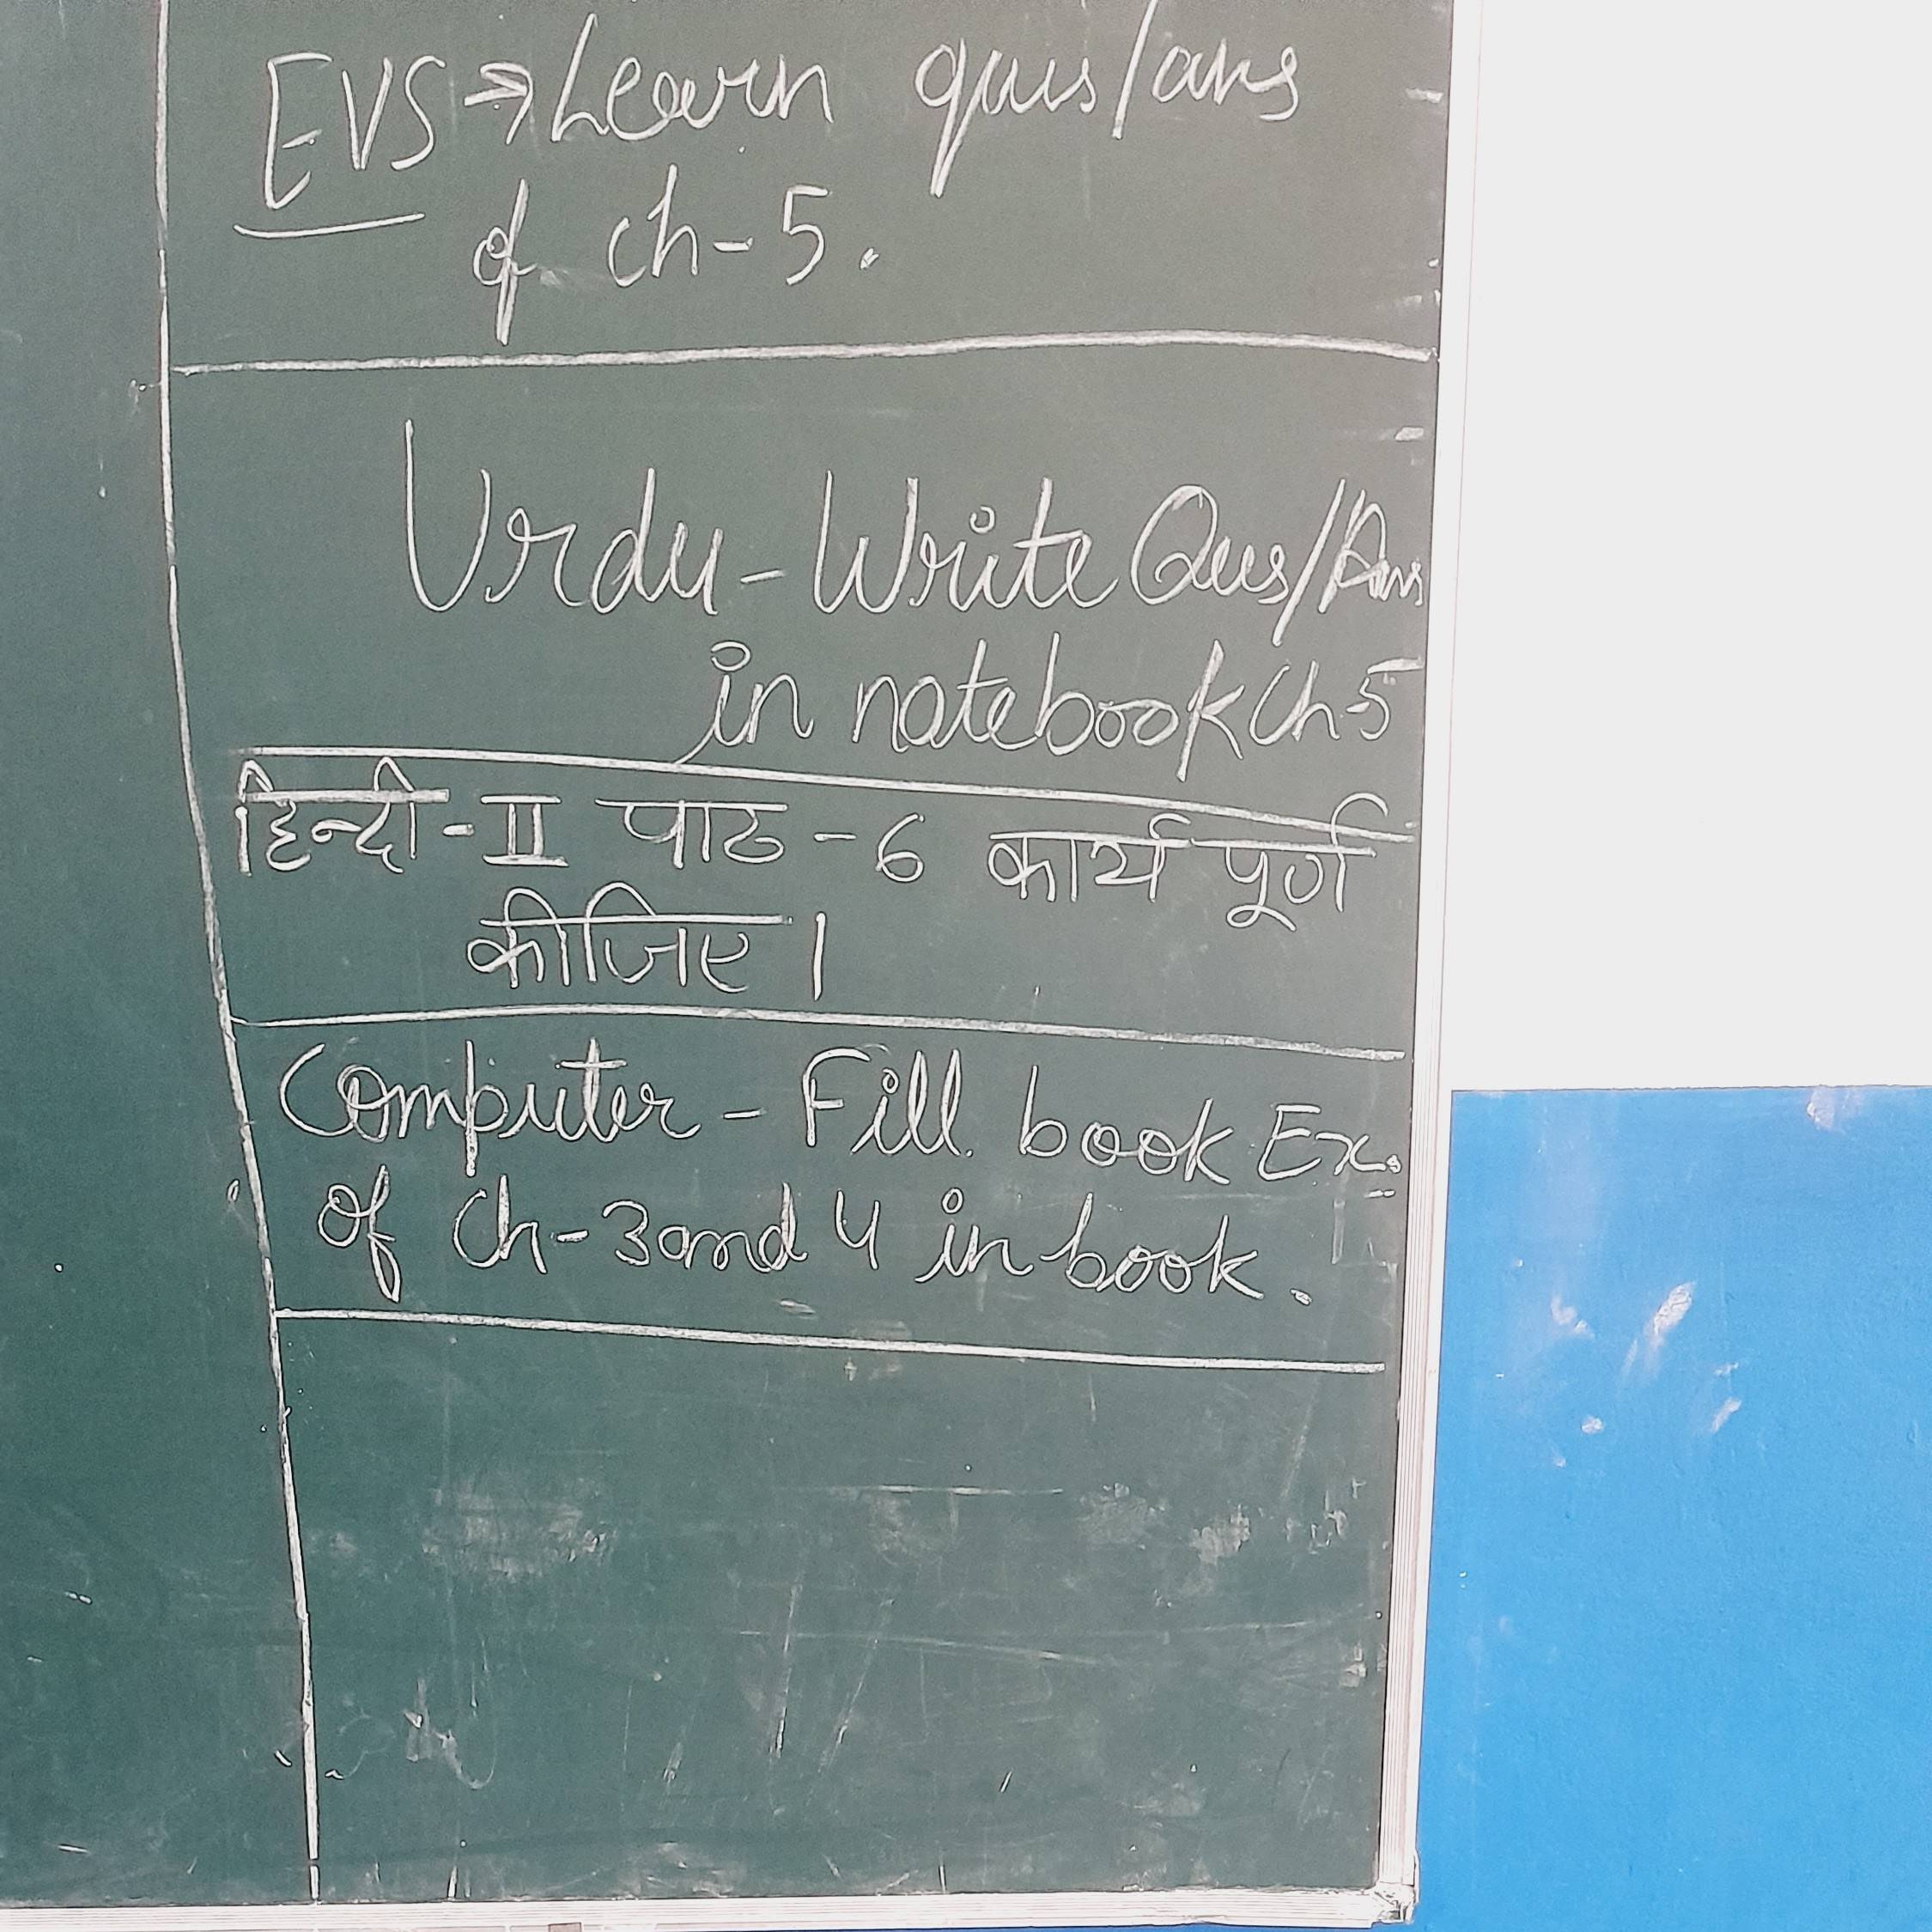 EVS → Learn ques/ans
of ch-5.
Urdu - Write Ques/Ans
in notebook Ch-5
हिन्दी - II पाठ - 6 कार्य पूर्ण
कीजिए।
Computer - Fill book Ex.
of Ch-3 and 4 in book.